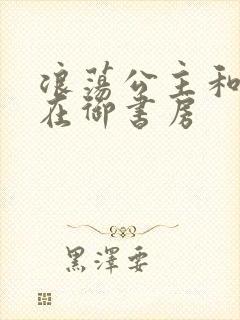 浪荡公主和
在御书房
黑澤要